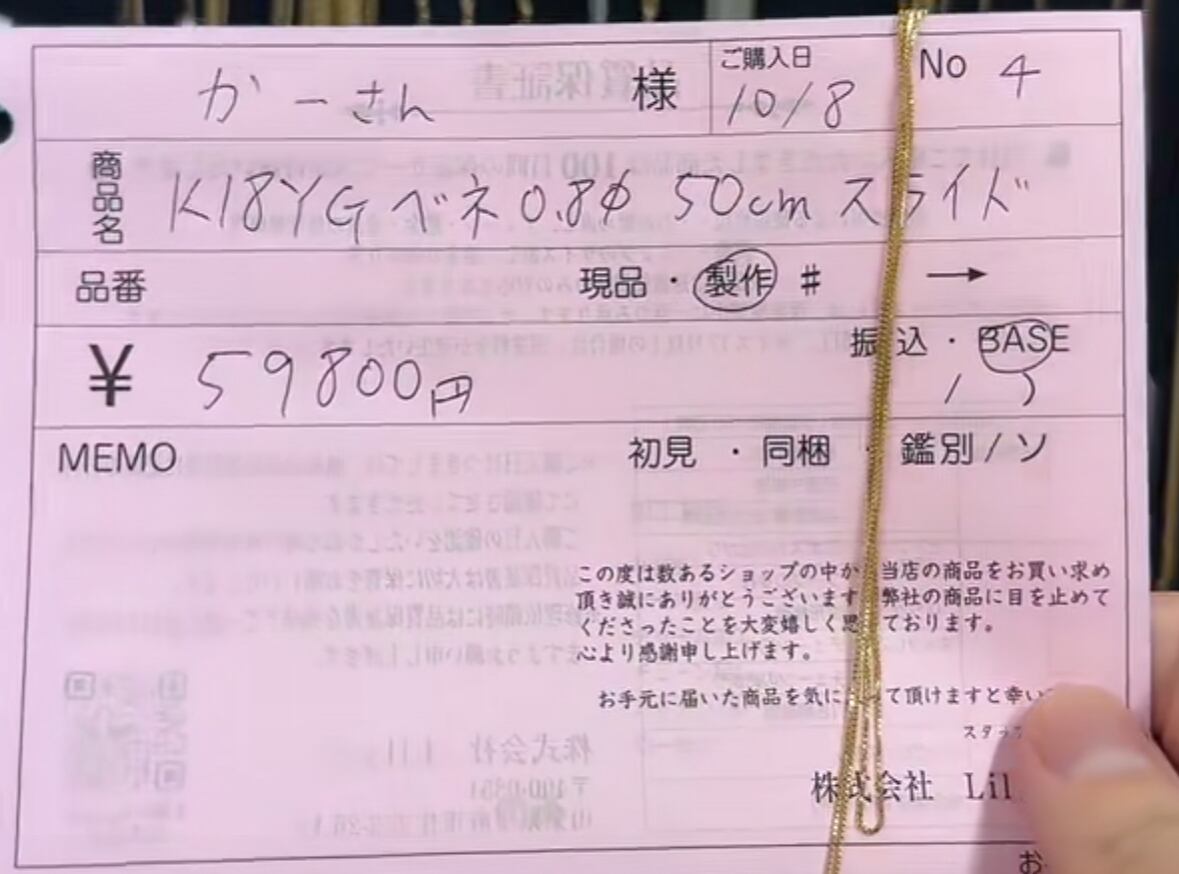 かーさん 様 ご購入日 10/8 No 4
商品名 K18YG ベネ 0.8Φ 50cm スライド
品番 現品・製作 # →
¥ 59800円 振込・BASE
MEMO 初見・同梱・鑑別/ソ
この度は数あるショップの中か 当店の商品をお買い求め
頂き誠にありがとうございます 弊社の商品に目を止めて
くださったことを大変嬉しく思 ております。
心より感謝申し上げます。
お手元に届いた商品を気に って頂けますと幸い
スタッフ
株式会社 Lil
お